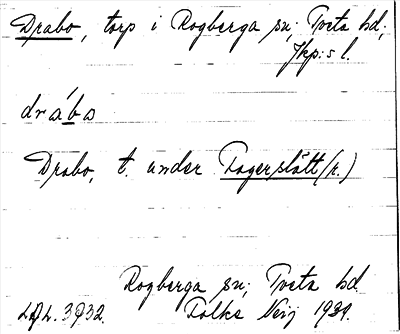 Drabo, torp i Rogberga sn; Tveta hd;
Jkp:s l.
dråba
Drabo, t. under Fagerslätt (r.)
Rogberga sn; Tveta hd.
3932. Folke Neij 1931.